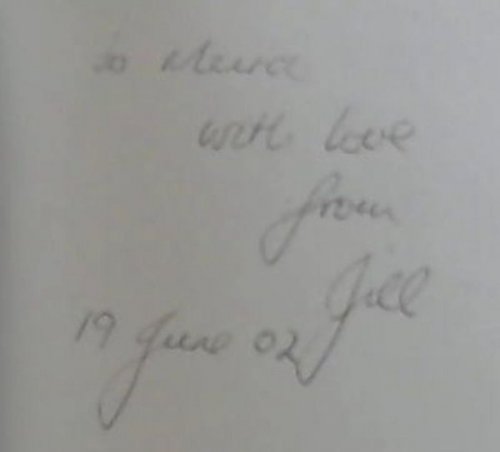 to Meira
with love
from
Jill
19 June 02